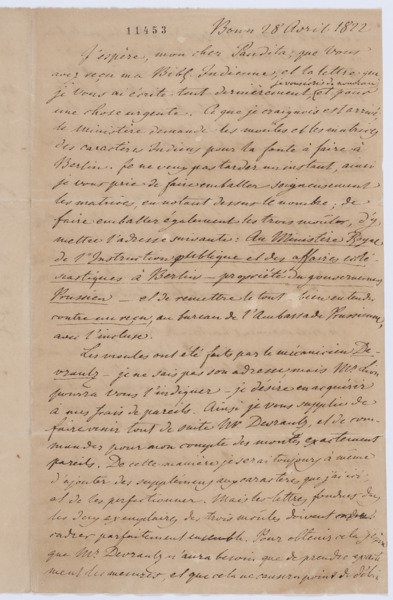 11453
Bonn 28 Avril 1822
J'espère, mon cher Pandita, que Vous
avez reçu ma Bibl. Indienne, et la lettre que
je vous ai écrite tout dernièrement. et pour
une chose urgente. Ce que je craignois est arrivé,
le Ministère demande les moules et les matrices
des caractères Indiens pour la fonte à faire à
Berlin. Je ne veux pas tarder un instant, ainsi
je vous prie de faire emballer soigneusement
les matrices, en notant dessus le nombre; de
faire emballer également les trois moules, d'y
mettre l'adresse suivante: Au Ministère Royal
de l'Instruction publique et des affaires ecclé-
siastiques à Berlin — propriété du gouvernement
Prussien — et de remettre le tout, bien entendu
contre un reçu, au bureau de l'Ambassade Prussienne,
avec l'incluse.
Les moules ont été faits par le mécanicien De-
vrault — je ne sais pas son adresse, mais Mr.
pourra vous l'indiquer — je désire en acquérir
à mes frais de pareils. Ainsi je vous supplie de
faire venir tout de suite Mr Devrault, et de com-
mander pour mon compte des moules exactement
pareils. De cette manière je serai toujours à même
d'ajouter des supplémens aux caractères que j'ai ici
et de les perfectionner. Mais les lettres fondues dans
les deux exemplaires des trois moules doivent
cadrer parfaitement ensemble. Pour obtenir cela
que Mr. Devrault n'aura besoin que de prendre exacte-
ment les mesures, et que cela ne causera point de délai